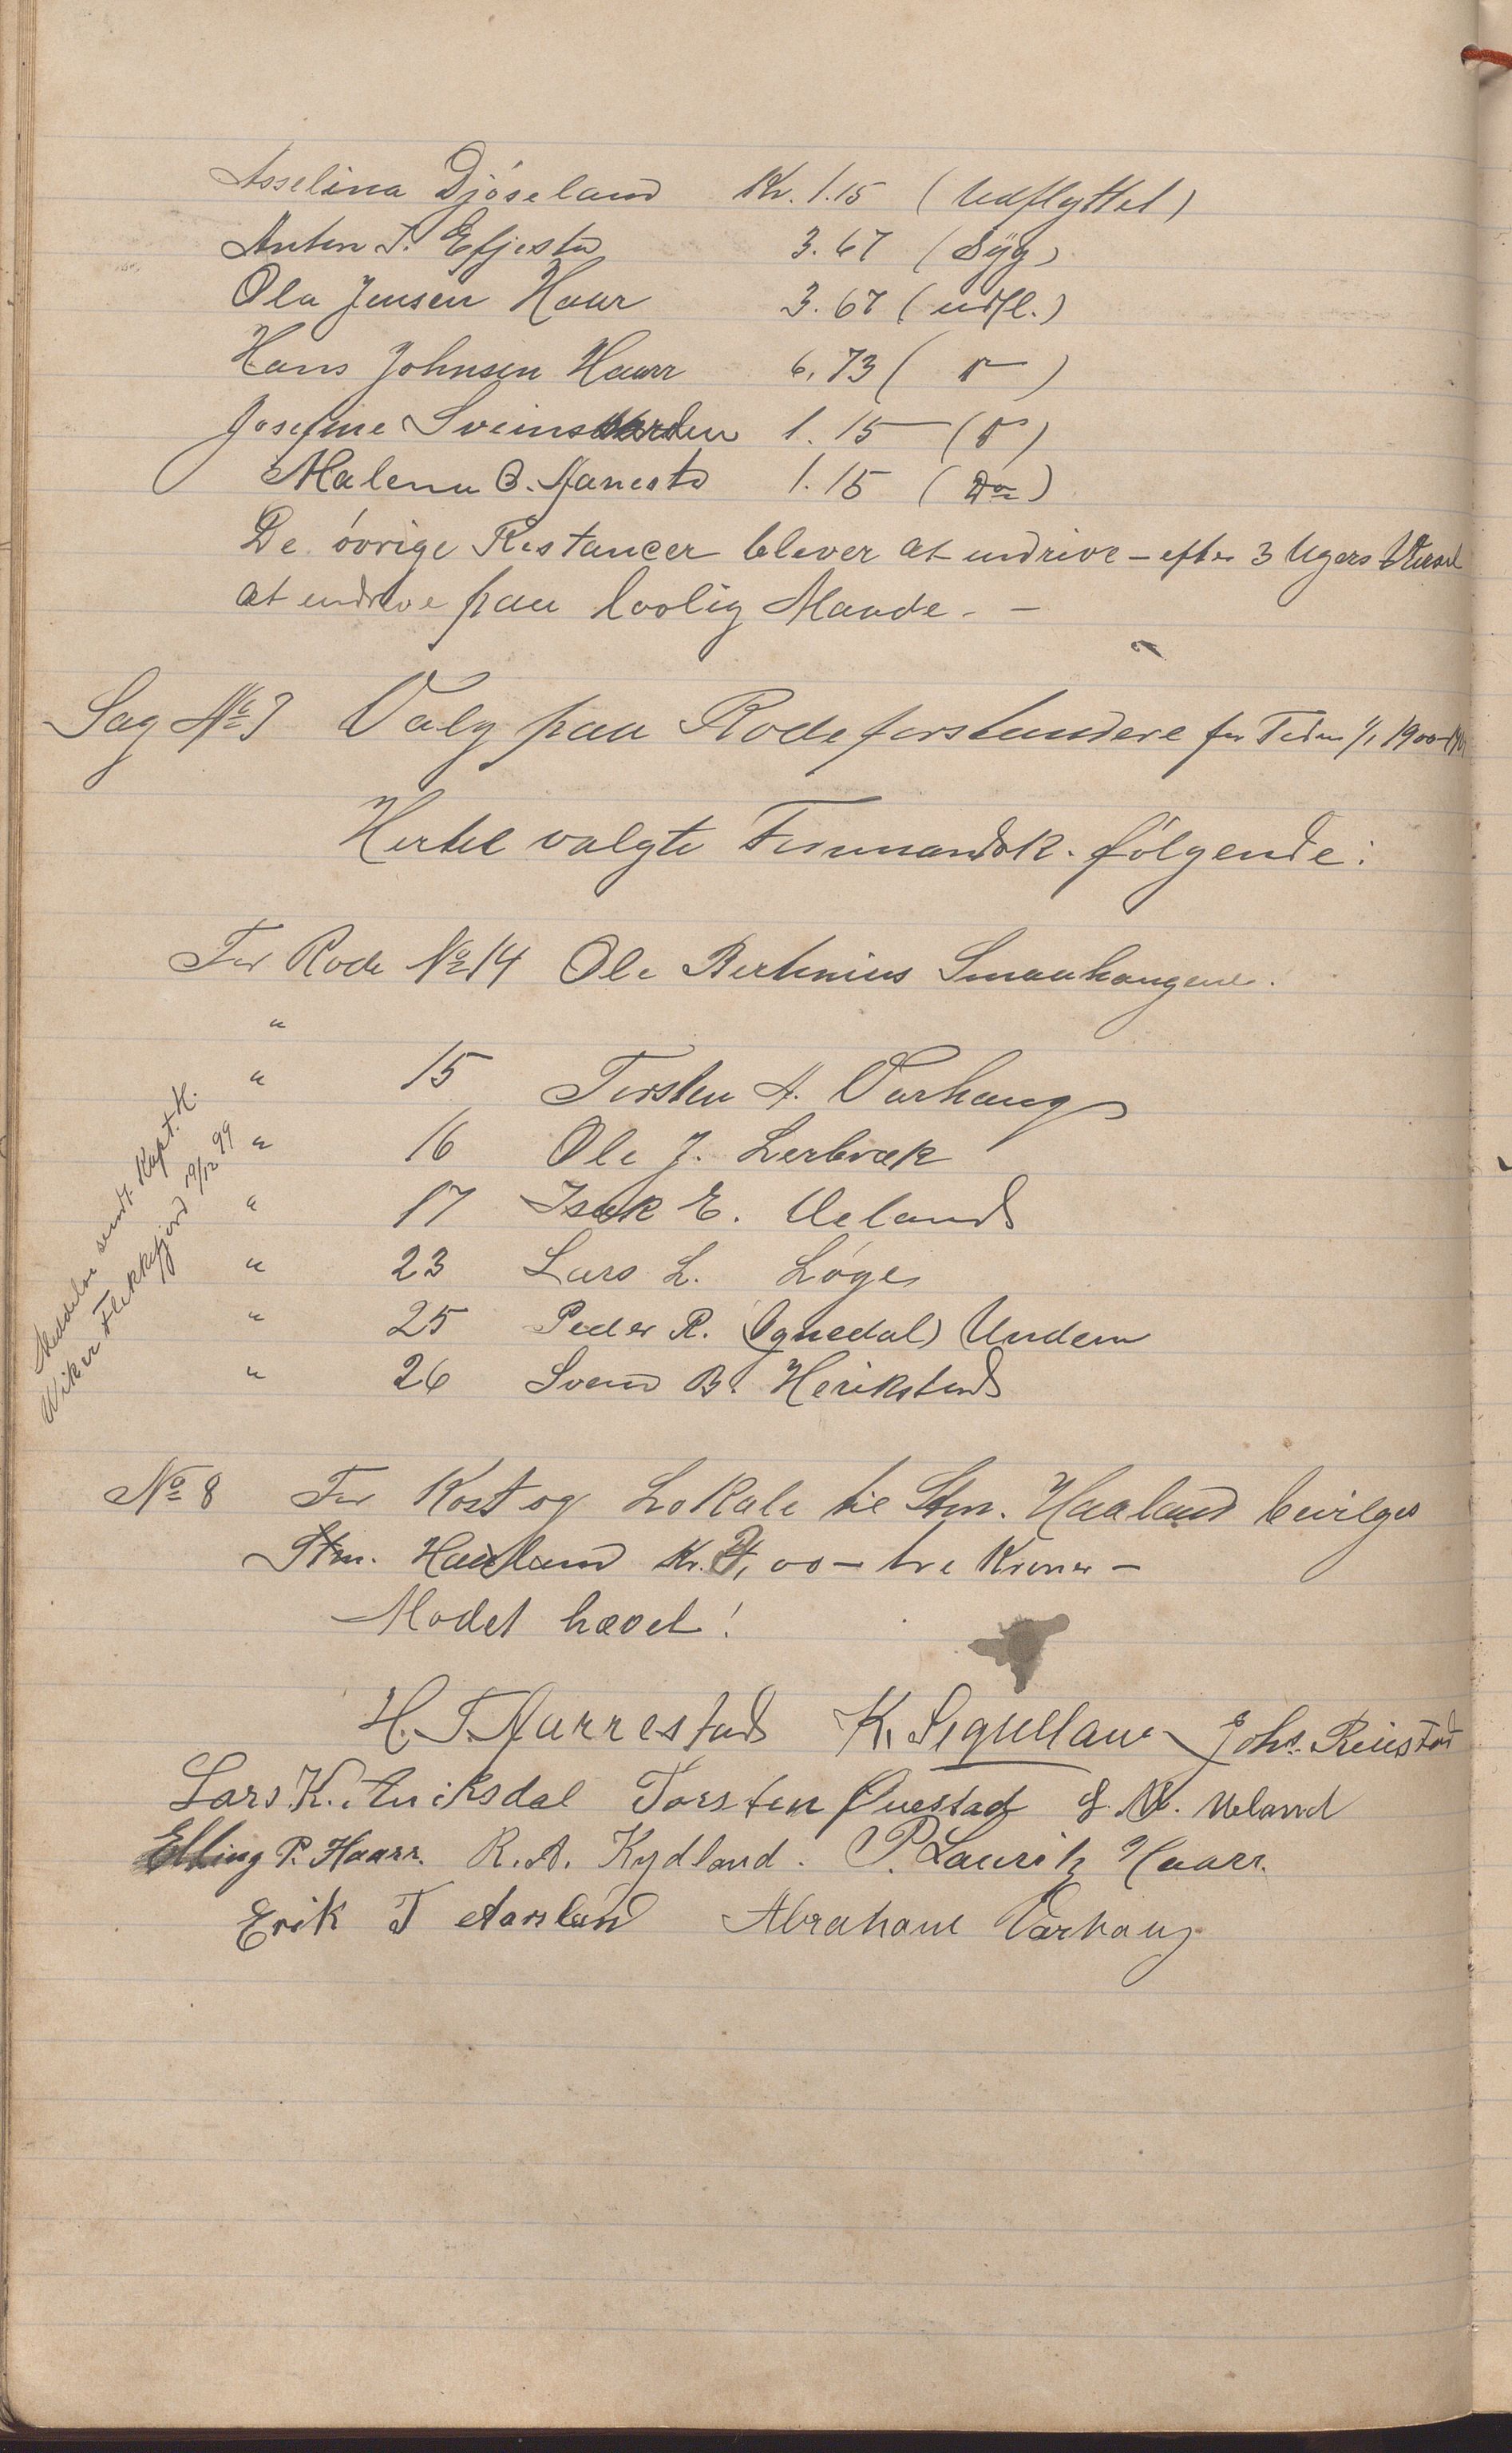 Asselina Djöseland Kr. 1.15 (Udflyttet)
Anton T. Efjestø 3.67 (Syg)
Ola Jensen Haar 3.67 (udfl.)
Hans Johnsen Haarr 6,73 ( )
Josefine 1.15 ( )
Malena B. 1.15 (Do)
De övrige Restancer blever at indrive – efter 3 Ugers
at indrive paa lovlig Maade. –
Sag No 7 Valg paa Rodeforstandere for Tiden 1/1 1900
Hertil valgte Formandsk. følgende:
For Rode No 14 Ole Bertinius Smaahaugene.
"
" 15 Torsten A. Varhaug
" 16 Ole J. Lerbræk
" 17 Isak E. Ueland
" 23 Lars L. Løge
" 25 Peder R. (Ognedal) Undem
" 26 Svend B. Herikstad
Meddelse sendt Kapt. H.
Wiker Flekkefjord 19/12 99
No 8 For Kost og Lokale til Stm. Haaland bevilges
Stm. Haaland Kr. 3,00 – tre Kroner –
Modet hævet!
H. T. Narrestad K. Joh. Reiestad
Lars K. Auiksdal Torsten Ouestad J. M. Ueland
Elling P. Haarr. R. A. Kydland. P. Laurits Haarr.
Erik T Aarsland Abraham Varhaug